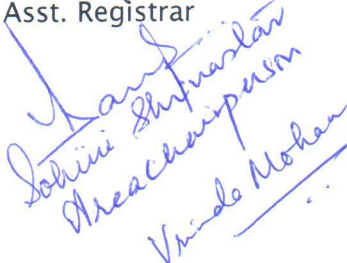 Asst. Registrar
Sohini Shrivastav
Area Chairperson
Vrinda Mohan